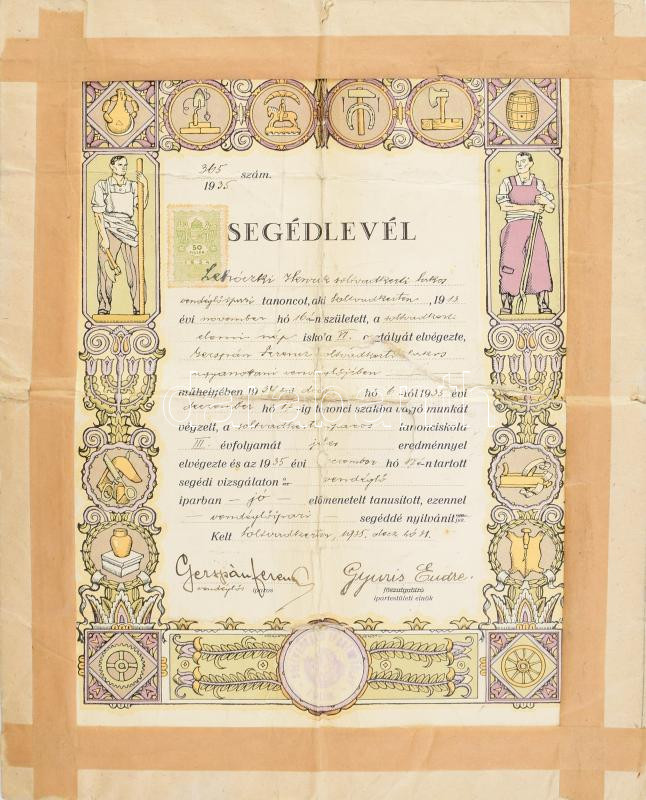 365 szám.
1935
50
FILLÉR
SEGÉDLEVÉL
Henrik soltvadkerti lakos
vendéglősipari tanoncot, aki Soltvadkerten, 1913
évi november hó 16-án született, a soltvadkerti
elemi nép iskola VI. osztályát elvégezte,
Gerspán Ferenc soltvadkerti lakos
ugyanottani vendéglőjében
műhelyében 1934 évi dec. hó 6-tól 1935 évi
december hó -ig tanonci szakba vágó munkát
végzett, a soltvadkerti iparos tanonciskola
III. évfolyamát jeles eredménnyel
elvégezte és az 1935 évi december hó n tartott
segédi vizsgálaton a vendéglő
iparban — jó — előmenetelt tanusított, ezennel
— vendéglősipari — segéddé nyilvánít
Kelt Soltvadkerten, 1935. dec. hó 21.
Gerspán Ferenc Gyuris Endre.
vendéglős iparos főszolgabíró
ipartestületi elnök